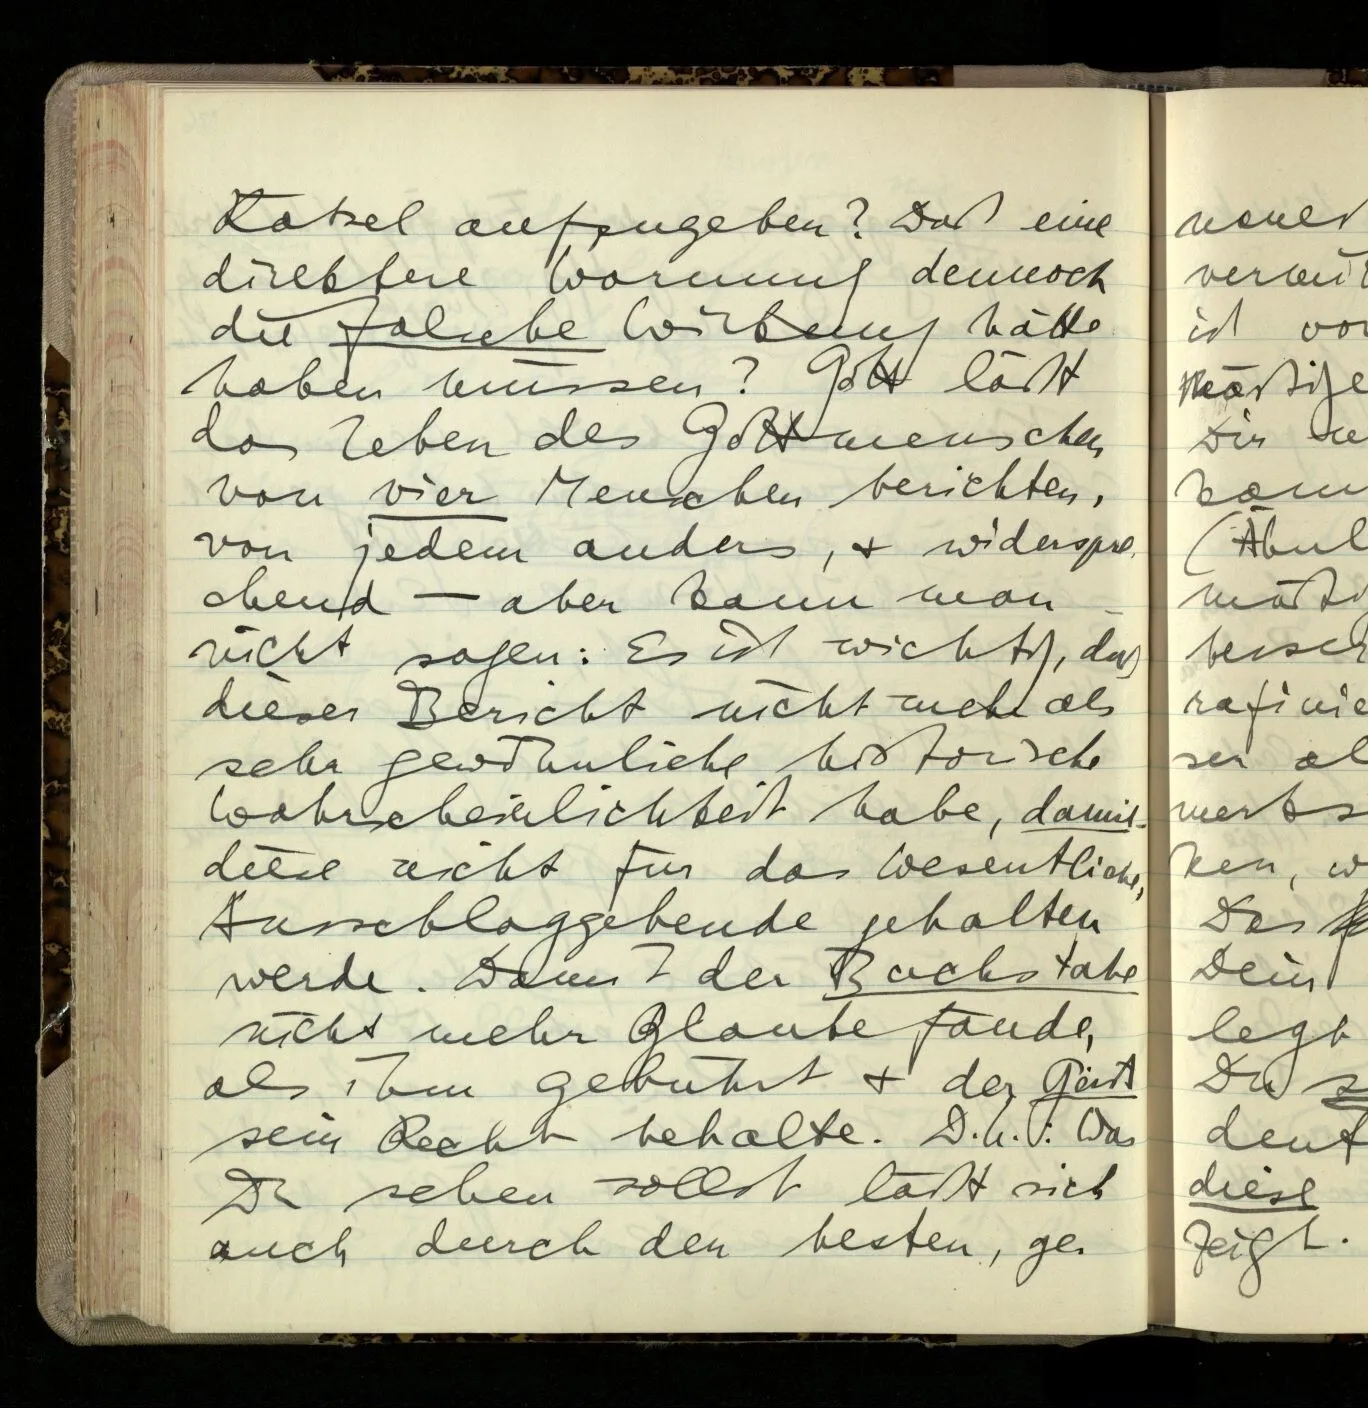 Rätsel aufzugeben? Daß eine
direktere Warnung dennoch
die falsche Wirkung hätte
haben müssen? Gott läßt
das Leben des Gottmenschen
von vier Menschen berichten,
von jedem anders, + widerspre-
chend — aber kann man
nicht sagen: Es ist wichtig, daß
dieser Bericht nicht mehr als
sehr gewöhnliche historische
Wahrscheinlichkeit habe, damit
diese nicht für das Wesentliche,
Ausschlaggebende gehalten
werde. Damit der Buchstabe
nicht mehr Glaube fände,
als ihm gebührt + der Geist
sein Recht behalte. D.h.: Was
Du sehen sollst läßt sich
auch durch den besten, ge-
ist vor
Dir
(Ähnl
ser al
ken, w
Das
Dein
legt
Du
deut
diese
zeigt.